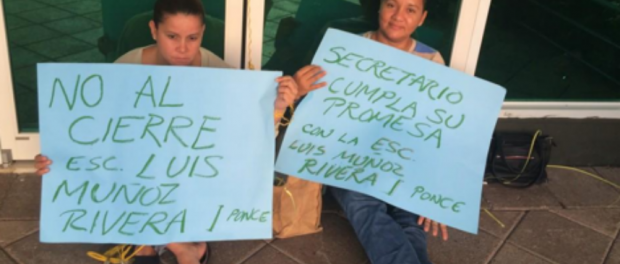 NO AL
CIERRE
ESC. LUIS
MUÑOZ
RIVERA I PONCE
SECRETARIO
CUMPLA SU
PROMESA
CON LA ESC.
LUIS MUÑOZ
RIVERA I PONCE